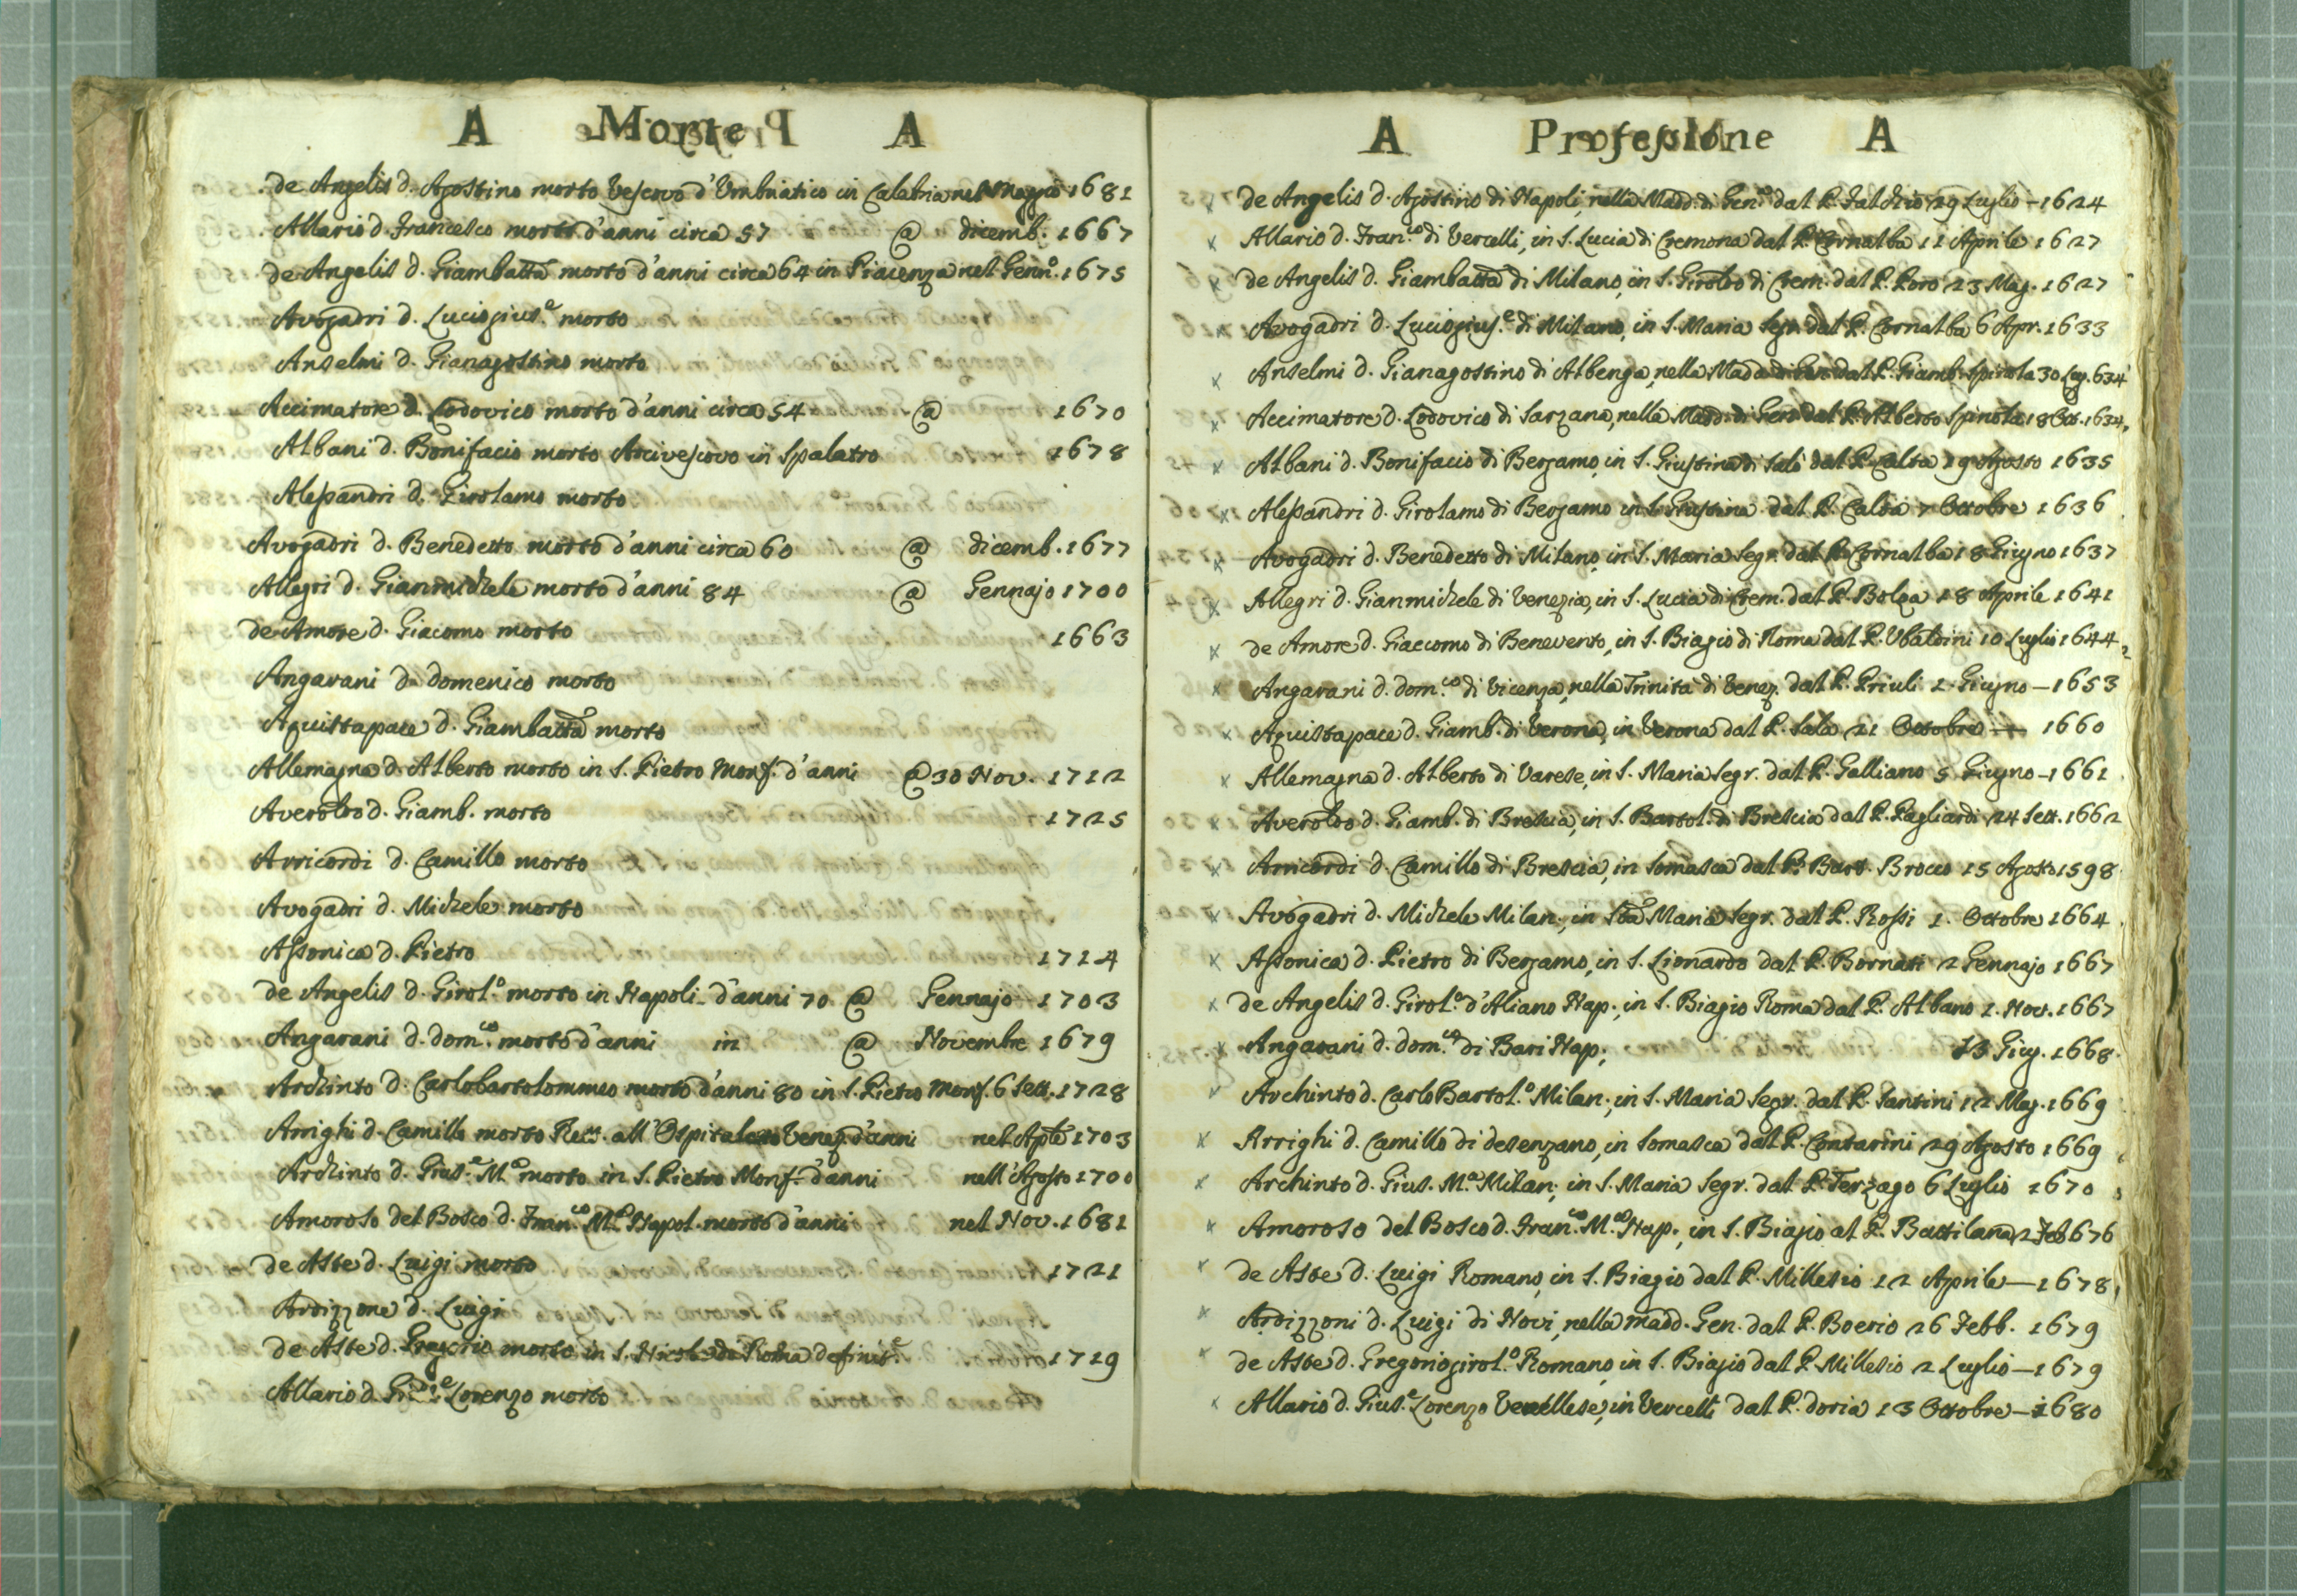 A Morte A
de Angelis d. Agostino morto Vescovo d'Umbriatico in Calabria nel Maggio 1681
Allario d. Francesco morto d'anni circa 57 @ dicemb. 1667
de Angelis d. Giambatta morto d'anni circa 64 in Piacenza nel Genn.o 1675
Avogadri d. Luciogius.e morto
Anselmi d. Gianagostino morto
Accimatore d. Lodovico morto d'anni circa 54 @ 1670
Albani d. Bonifacio morto Arcivescovo in Spalatro 1678
Alessandri d. Girolamo morto
Avogadri d. Benedetto morto d'anni circa 60 @ dicemb. 1677
Allegri d. Gianmichele morto d'anni 84 @ Gennajo 1700
de Amore d. Giacomo morto 1663
Angarani d. domenico morto
Aquistapace d. Giambatta morto
Allemagna d. Alberto morto in S. Pietro Monf. d'anni @ 30 Nov. 1712
Averoldo d. Giamb. morto 1725
Arricordi d. Camillo morto
Avogadri d. Michele morto
Assonica d. Pietro 1714
de Angelis d. Girol.o morto in Napoli d'anni 70 @ Gennajo 1703
Angarani d. dom.co morto d'anni in @ Novembre 1679
Archinto d. Carlobartolommeo morto d'anni 80 in S. Pietro Monf. 6 Sett. 1728
Arrighi d. Camillo morto all'Ospitale Venez. d'anni nel Aple 1703
Archinto d. Gius.e M.a morto in S. Pietro Monf. d'anni nell'Agosto 1700
Amoroso del Bosco d. Fran.co M.a Napol. morto d'anni nel Nov. 1681
de Aste d. Luigi morto 1721
Ardizzone d. Luigi
de Aste d. Gregorio morto in S. Nicola di Roma definit.e 1719
Allario d. Lorenzo morto
A Professione A
x de Angelis d. Agostino di Napoli, nella Madd. di Gen.a dal P. 29 Luglio - 1624
x Allario d. Fran.co di Vercelli, in S. Lucia di Cremona dal P. Cornalba 11 Aprile 1627
x de Angelis d. Giambatta di Milano, in S. Giroldo di Crem. dal P. Poro 23 Mag. 1627
x Avogadri d. Luciogius.e di Milano, in S. Maria Segr. dal P. Cornalba 6 Apr. 1633
x Anselmi d. Gianagostino di Albenga, nella Madd. di Gen. dal P. Giamb. Spinola 30 Lug. 634
x Accimatore d. Lodovico di Sarzana, nella Madd. di Gen. dal P. Alberto Spinola 18 Ott. 1634
x Albani d. Bonifacio di Bergamo, in S. Giustina di Salò dal P. Calta 19 Agosto 1635
x Alessandri d. Girolamo di Bergamo in S. Giustina dal P. Calta 7 Ottobre 1636
x Avogadri d. Benedetto di Milano, in S. Maria Segr. dal P. Cornalba 18 Giugno 1637
x Allegri d. Gianmichele di Venezia, in S. Lucia di Crem. dal P. Bolza 18 Aprile 1641
x de Amore d. Giaccomo di Benevento, in S. Biagio di Roma dal P. Ubaldini 10 Luglio 1644
x Angarani d. dom.co di Vicenza, nella Trinità di Venez. dal P. Priuli 2. Giugno - 1653
x Aquistapace d. Giamb. di Verona, in Verona dal P. Sala 21 Ottobre 1660
x Allemagna d. Alberto di Varese, in S. Maria Segr. dal P. Galliano 5 Giugno - 1661
x Averoldo d. Giamb. di Brescia, in S. Bartol. di Brescia dal P. Pagliardi 24 Sett. 1662
x Arricordi d. Camillo di Brescia, in Somasca dal P. Bart. Brocco 15 Agosto 1598
x Avogadri d. Michele Milan., in Sta Maria Segr. dal P. Rossi 1. Ottobre 1664
x Assonica d. Pietro di Bergamo, in S. Lionardo dal P. Bornati 2 Gennajo 1667
x de Angelis d. Girol.o d'Aliano Nap., in S. Biagio Roma dal P. Albano 1. Nov. 1667
x Angarani d. dom.co di Bari Nap., 13 Giug. 1668
Archinto d. Carlo Bartol.o Milan., in S. Maria Segr. dal P. Santini 12 Mag. 1669
x Arrighi d. Camillo di desenzano, in Somasca dal P. Contarini 29 Agosto 1669
x Archinto d. Gius. M.a Milan., in S. Maria Segr. dal P. Terzago 6 Luglio 1670
x Amoroso del Bosco d. Fran.co M.a Nap., in S. Biagio al P. Battilana 2 Feb 676
x de Aste d. Luigi Romano, in S. Biagio dal P. Millesio 12 Aprile - 1678
x Ardizzoni d. Luigi di Novi, nella Madd. Gen. dal P. Boerio 26 Febb. 1679
x de Aste d. Gregoriogirol.o Romano, in S. Biagio dal P. Millesio 2 Luglio - 1679
x Allario d. Gius.e Lorenzo Vercellese, in Vercelli dal P. doria 13 Ottobre - 1680